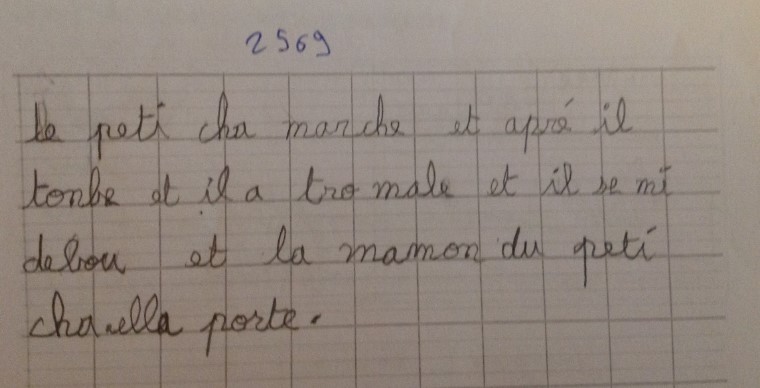 2569
le peti cha marche et apré il
tonbe et il a tro male et il se mi
debou et la mamon du peti
cha ella porte.